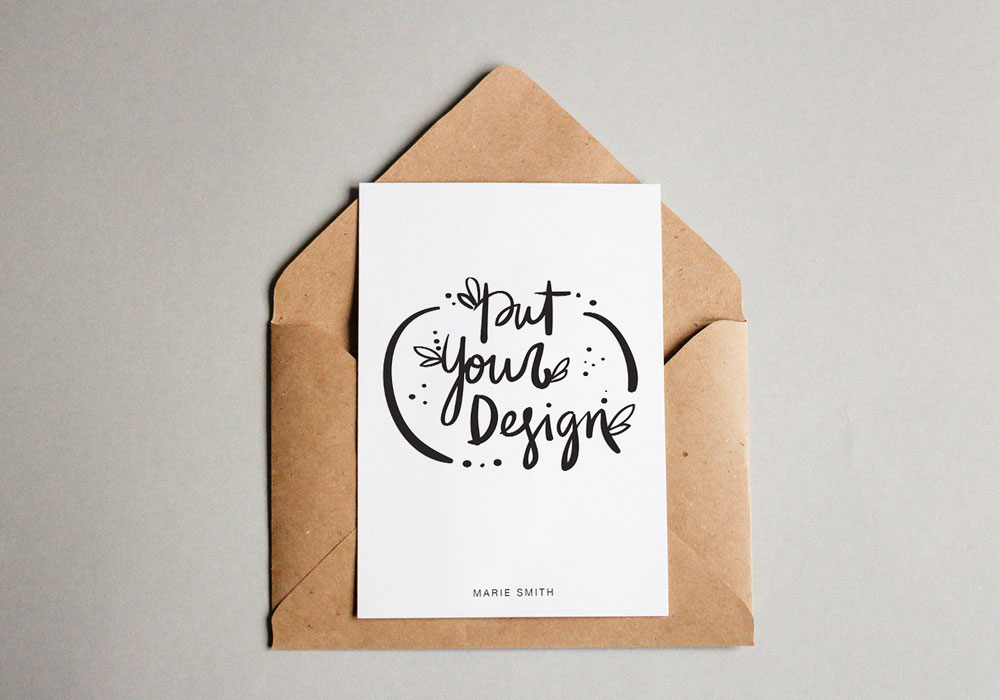 Put
Your
Design
MARIE SMITH